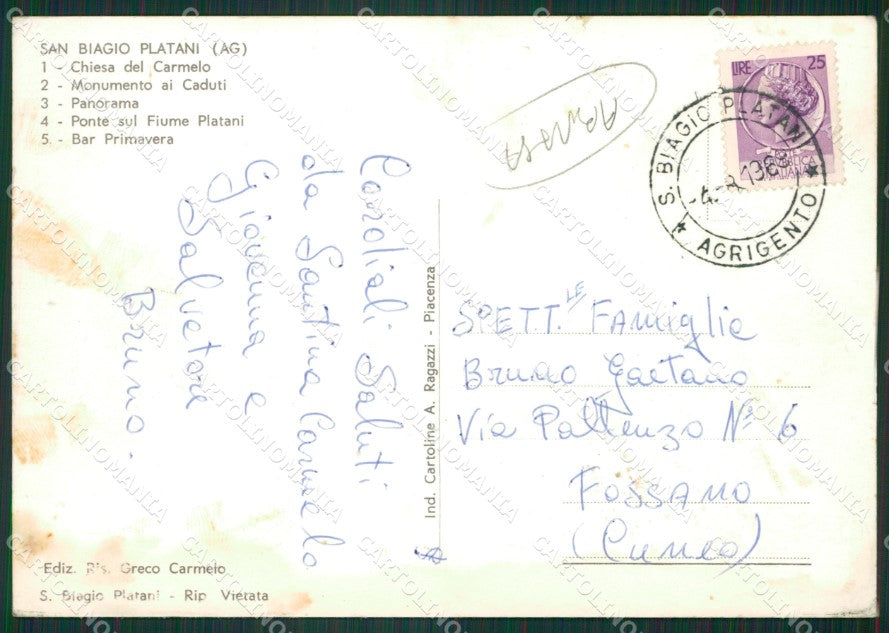 SAN BIAGIO PLATANI (AG)
1 - Chiesa del Carmelo
2 - Monumento ai Caduti
3 - Panorama
4 - Ponte sul Fiume Platani
5. - Bar Primavera
LIRE 25
S. BIAGIO PLATANI
AGRIGENTO
Cordiali Saluti
da Santina Carmelo
Giovanna e
Salvatore
Bruno.
Ind. Cartoline A. Ragazzi - Piacenza
SPETT.LE Famiglie
Bruno Gaetano
Via N° 6
FOSSANO
(Cuneo)
Ediz. Ris. Greco Carmelo
S. Biagio Platani - Rip Vietata
CARTOLINOMANIA